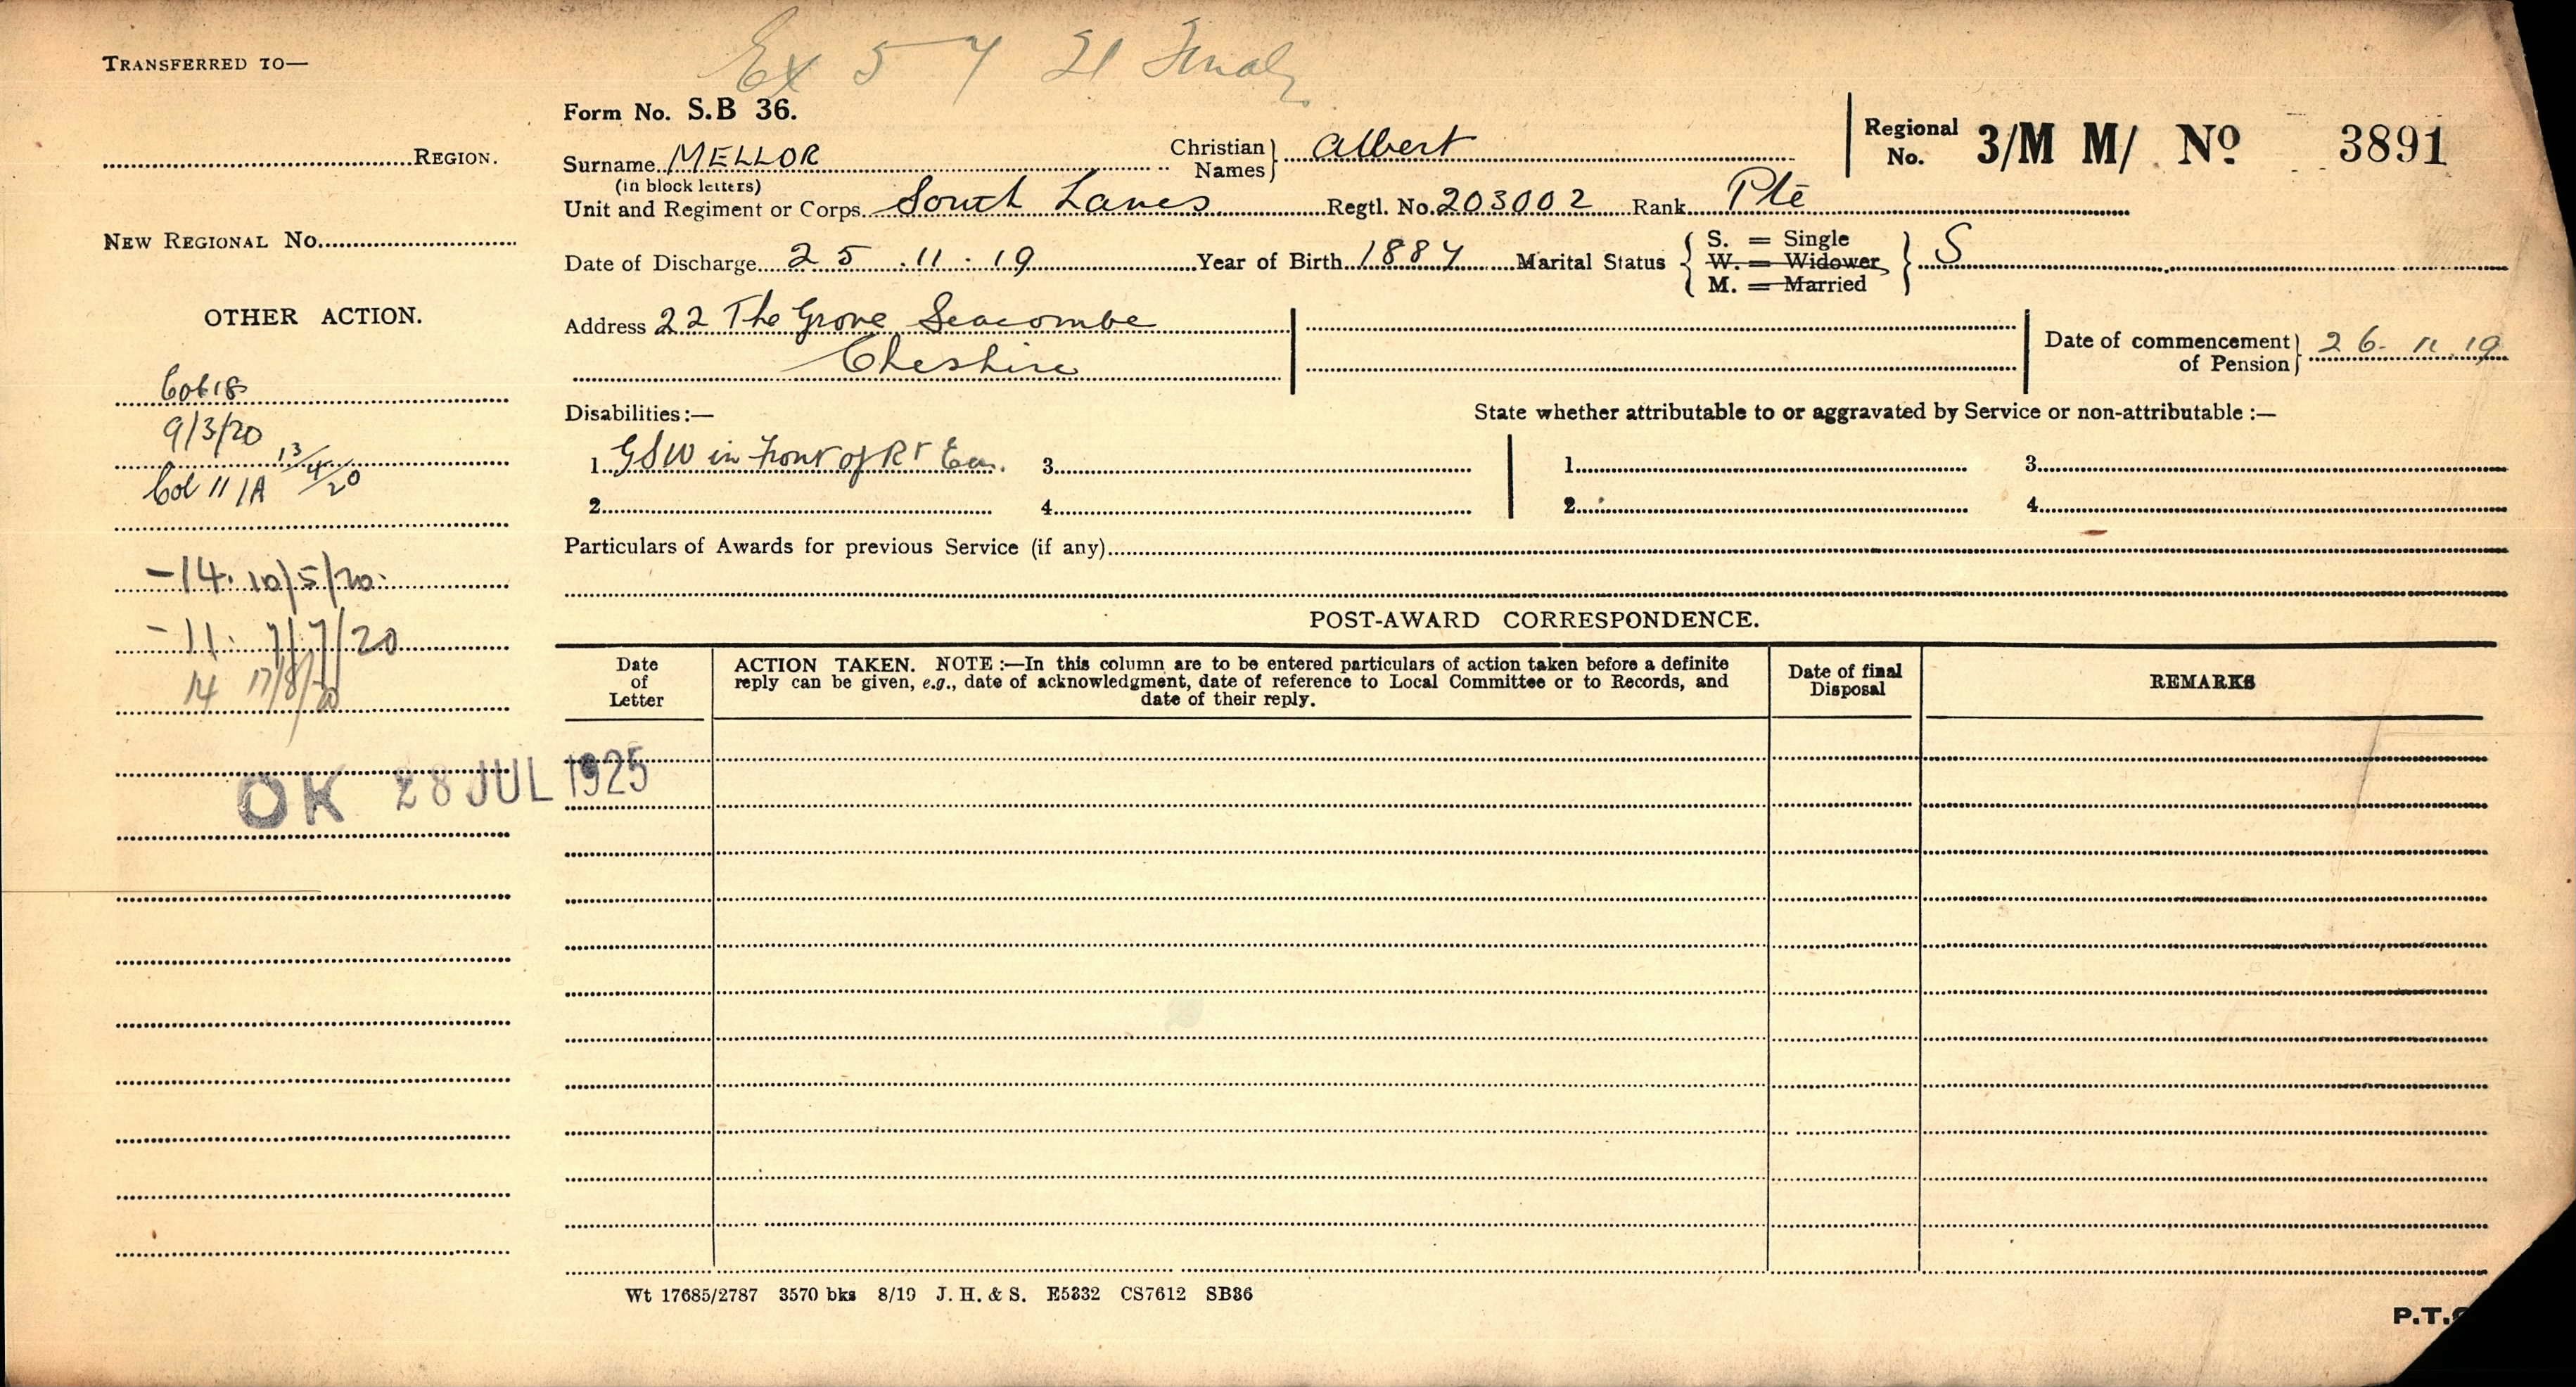 Ex 5 7 21 Finaly
TRANSFERRED TO—
REGION.
NEW REGIONAL No.
OTHER ACTION.
Col 18
9/3/20
Col 11/A 13/4/20
-14. 10/5/20.
-11. 7/7/20
14 17/8/20
OK 28 JUL 1925
Form No. S.B 36.
Surname MELLOR Christian Names} Albert
(in block letters)
Regional No. 3/M M/ No 3891
Unit and Regiment or Corps South Lancs Regtl. No. 203002 Rank Pte
Date of Discharge 25.11.19 Year of Birth 1887 Marital Status { S. = Single W. = Widower M. = Married } S
Address 22 The Grove Seacombe
Cheshire
Date of commencement of Pension} 26.11.19
Disabilities:— State whether attributable to or aggravated by Service or non-attributable :—
1. GSW in front of Rt Ear. 3. 1. 3.
2. 4. 2. 4.
Particulars of Awards for previous Service (if any)
POST-AWARD CORRESPONDENCE.
Date of Letter
ACTION TAKEN. NOTE :—In this column are to be entered particulars of action taken before a definite
reply can be given, e.g., date of acknowledgment, date of reference to Local Committee or to Records, and
date of their reply.
Date of final Disposal
REMARKS
Wt 17685/2787 3570 bks 8/19 J. H. & S. E5332 CS7612 SB36
P.T.